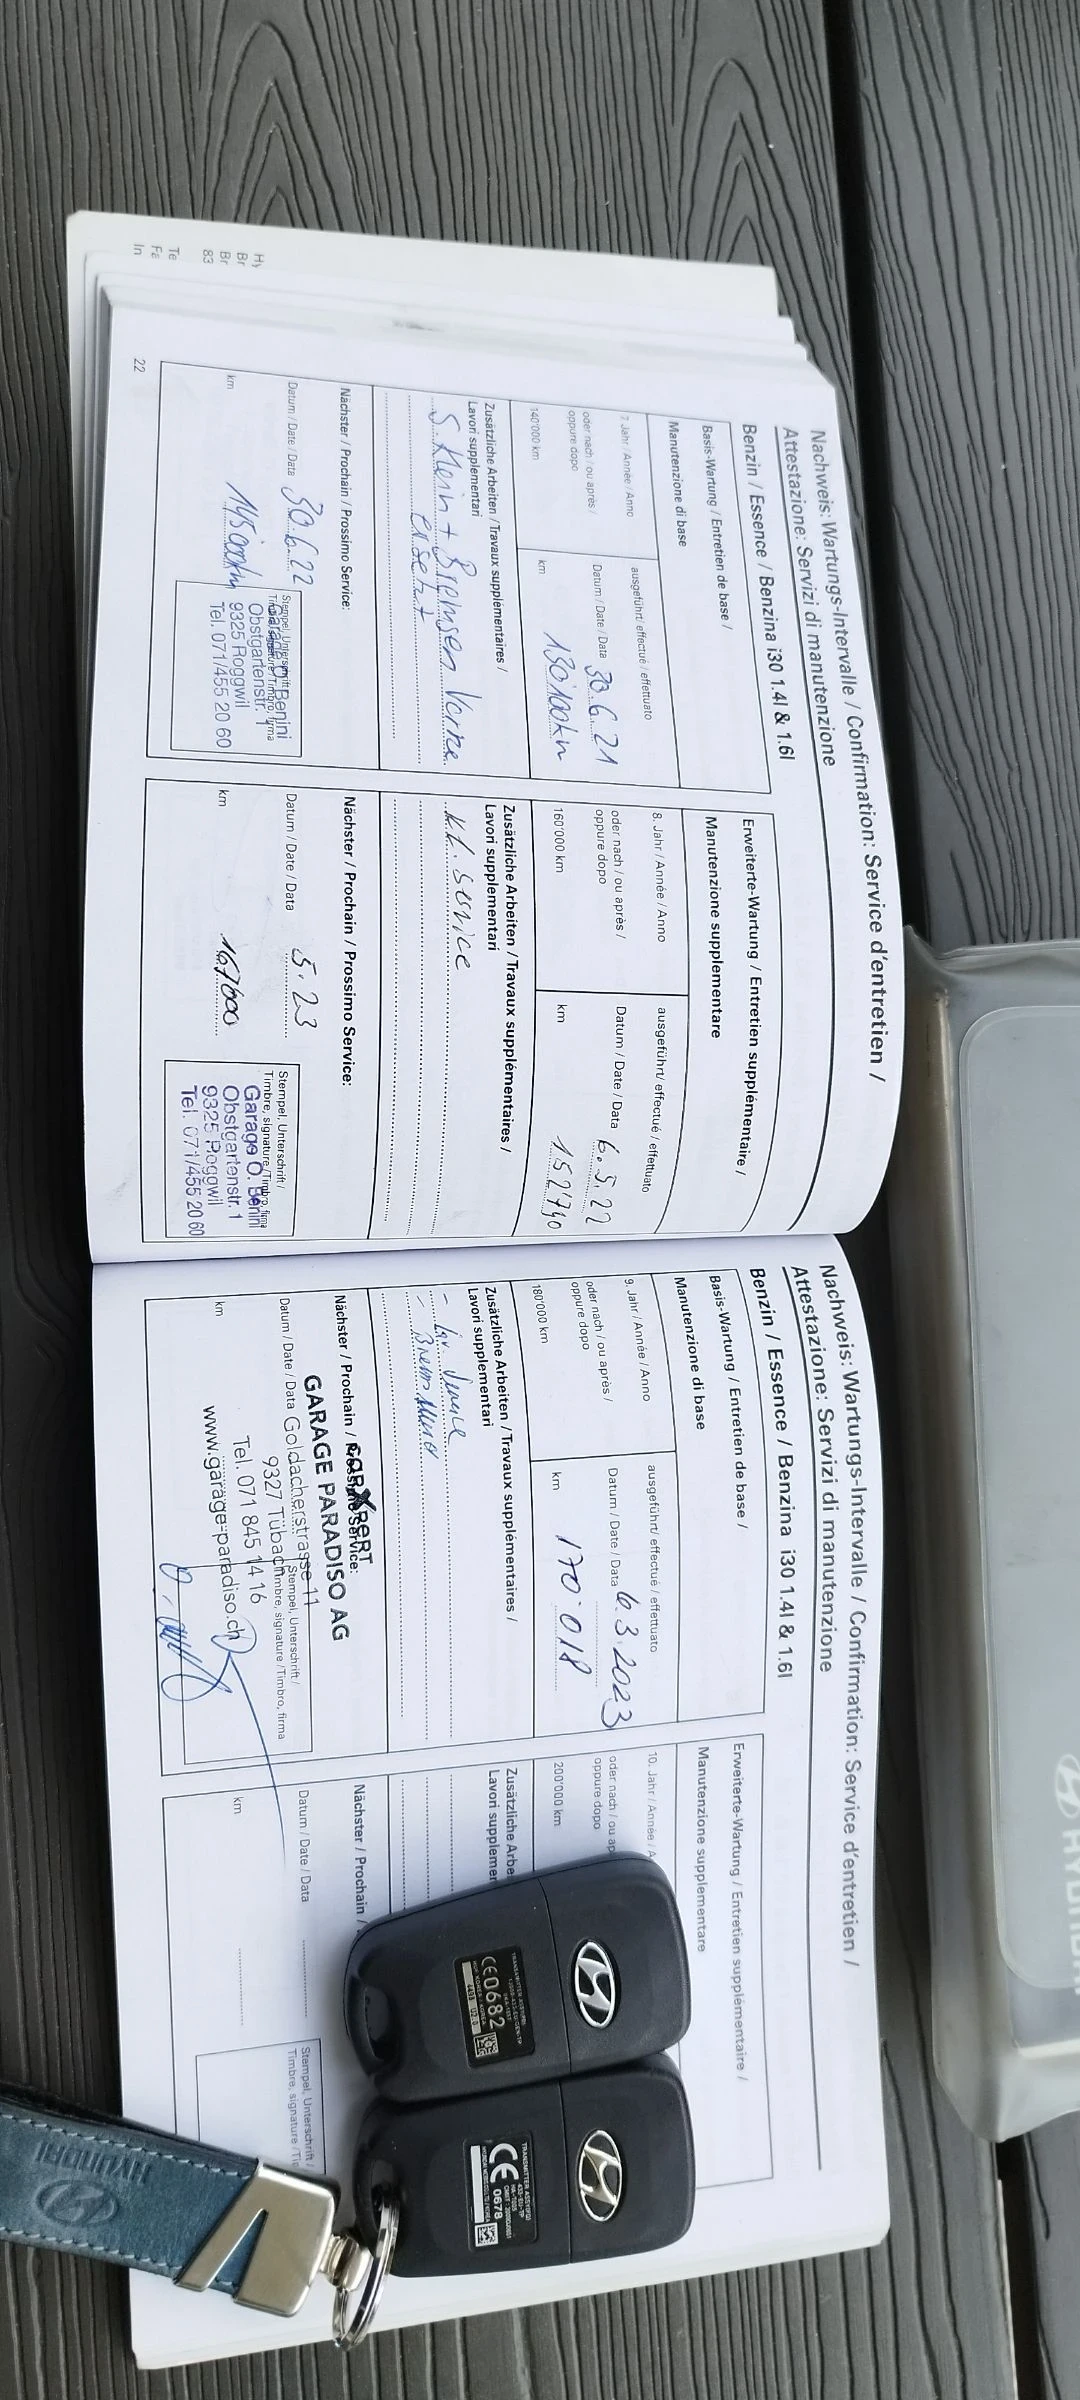 Nachweis: Wartungs-Intervalle / Confirmation: Service d'entretien /
Attestazione: Servizi di manutenzione
Benzin / Essence / Benzina i30 1.4l & 1.6l
Basis-Wartung / Entretien de base /
Manutenzione di base
7. Jahr / Année / Anno
oder nach / ou après /
oppure dopo
140'000 km
ausgeführt / effectué / effettuato
Datum / Date / Data 30.6.21
km 130'100km
Zusätzliche Arbeiten / Travaux supplémentaires /
Lavori supplementari
S. Klein + Bremsen
ersetzt
Nächster / Prochain / Prossimo Service:
Datum / Date / Data 30.6.22
km 145'000km
Stempel, Unterschrift
Timbre, signature / Timbro, firma
Garage O. Benini
Obstgartenstr. 1
9325 Roggwil
Tel. 071/455 20 60
22
Erweiterte-Wartung / Entretien supplémentaire /
Manutenzione supplementare
8. Jahr / Année / Anno
oder nach / ou après /
oppure dopo
160'000 km
ausgeführt / effectué / effettuato
Datum / Date / Data 6.5.22
km 152'740
Zusätzliche Arbeiten / Travaux supplémentaires /
Lavori supplementari
kl. Service
Nächster / Prochain / Prossimo Service:
Datum / Date / Data 5.23
km 167000
Stempel, Unterschrift /
Timbre, signature / Timbro, firma
Garage O. Benini
Obstgartenstr. 1
9325 Roggwil
Tel. 071/455 20 60
Nachweis: Wartungs-Intervalle / Confirmation: Service d'entretien /
Attestazione: Servizi di manutenzione
Benzin / Essence / Benzina i30 1.4l & 1.6l
Basis-Wartung / Entretien de base /
Manutenzione di base
9. Jahr / Année / Anno
oder nach / ou après /
oppure dopo
180'000 km
ausgeführt / effectué / effettuato
Datum / Date / Data 6.3.2023
km 170'018
Zusätzliche Arbeiten / Travaux supplémentaires /
Lavori supplementari
Nächster / Prochain / Prossimo Service:
carXpert
GARAGE PARADISO AG
Datum / Date / Data Goldacherstrasse 11
9327 Tübach
Tel. 071 845 14 16
km www.garage-paradiso.ch
Stempel, Unterschrift /
Timbre, signature / Timbro, firma
Erweiterte-Wartung / Entretien supplémentaire /
Manutenzione supplementare
10. Jahr / Année / A
oder nach / ou ap
oppure dopo
200'000 km
Zusätzliche Arbe
Lavori supplemen
Nächster / Prochain /
Datum / Date / Data
km
Stempel, Unterschrift /
Timbre, signature / Ti
CE0682
CE 0678
HYUNDAI
HYUNDAI